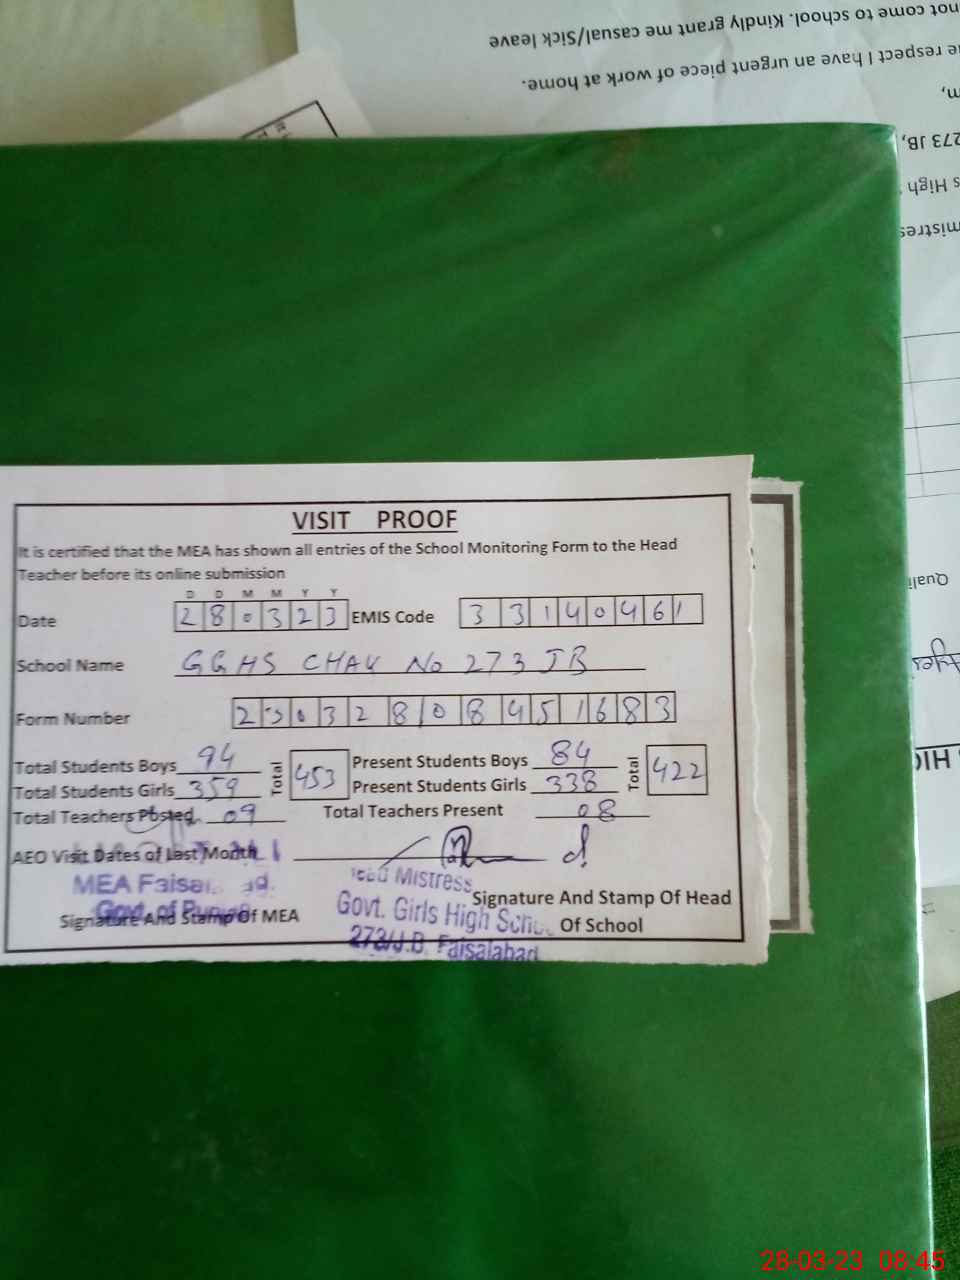 not come to school. Kindly grant me casual/Sick leave
respect I have an urgent piece of work at home.
273 JB,
s High
VISIT PROOF
It is certified that the MEA has shown all entries of the School Monitoring Form to the Head
Teacher before its online submission
D D M M Y Y
Date 280323 EMIS Code 33140461
School Name GGHS CHAK No 273 JB
Form Number 230328108451683
Total Students Boys 94 Total 453 Present Students Boys 84 Total 422
Total Students Girls 359 Present Students Girls 338
Total Teachers Posted 09 Total Teachers Present 08
AEO Visit Dates of Last Month
MEA Faisal
Govt. of Punjab
Signature And Stamp Of MEA
Head Mistress
Govt. Girls High School
273/J.B. Faisalabad
Signature And Stamp Of Head
Of School
28-03-23 08:45